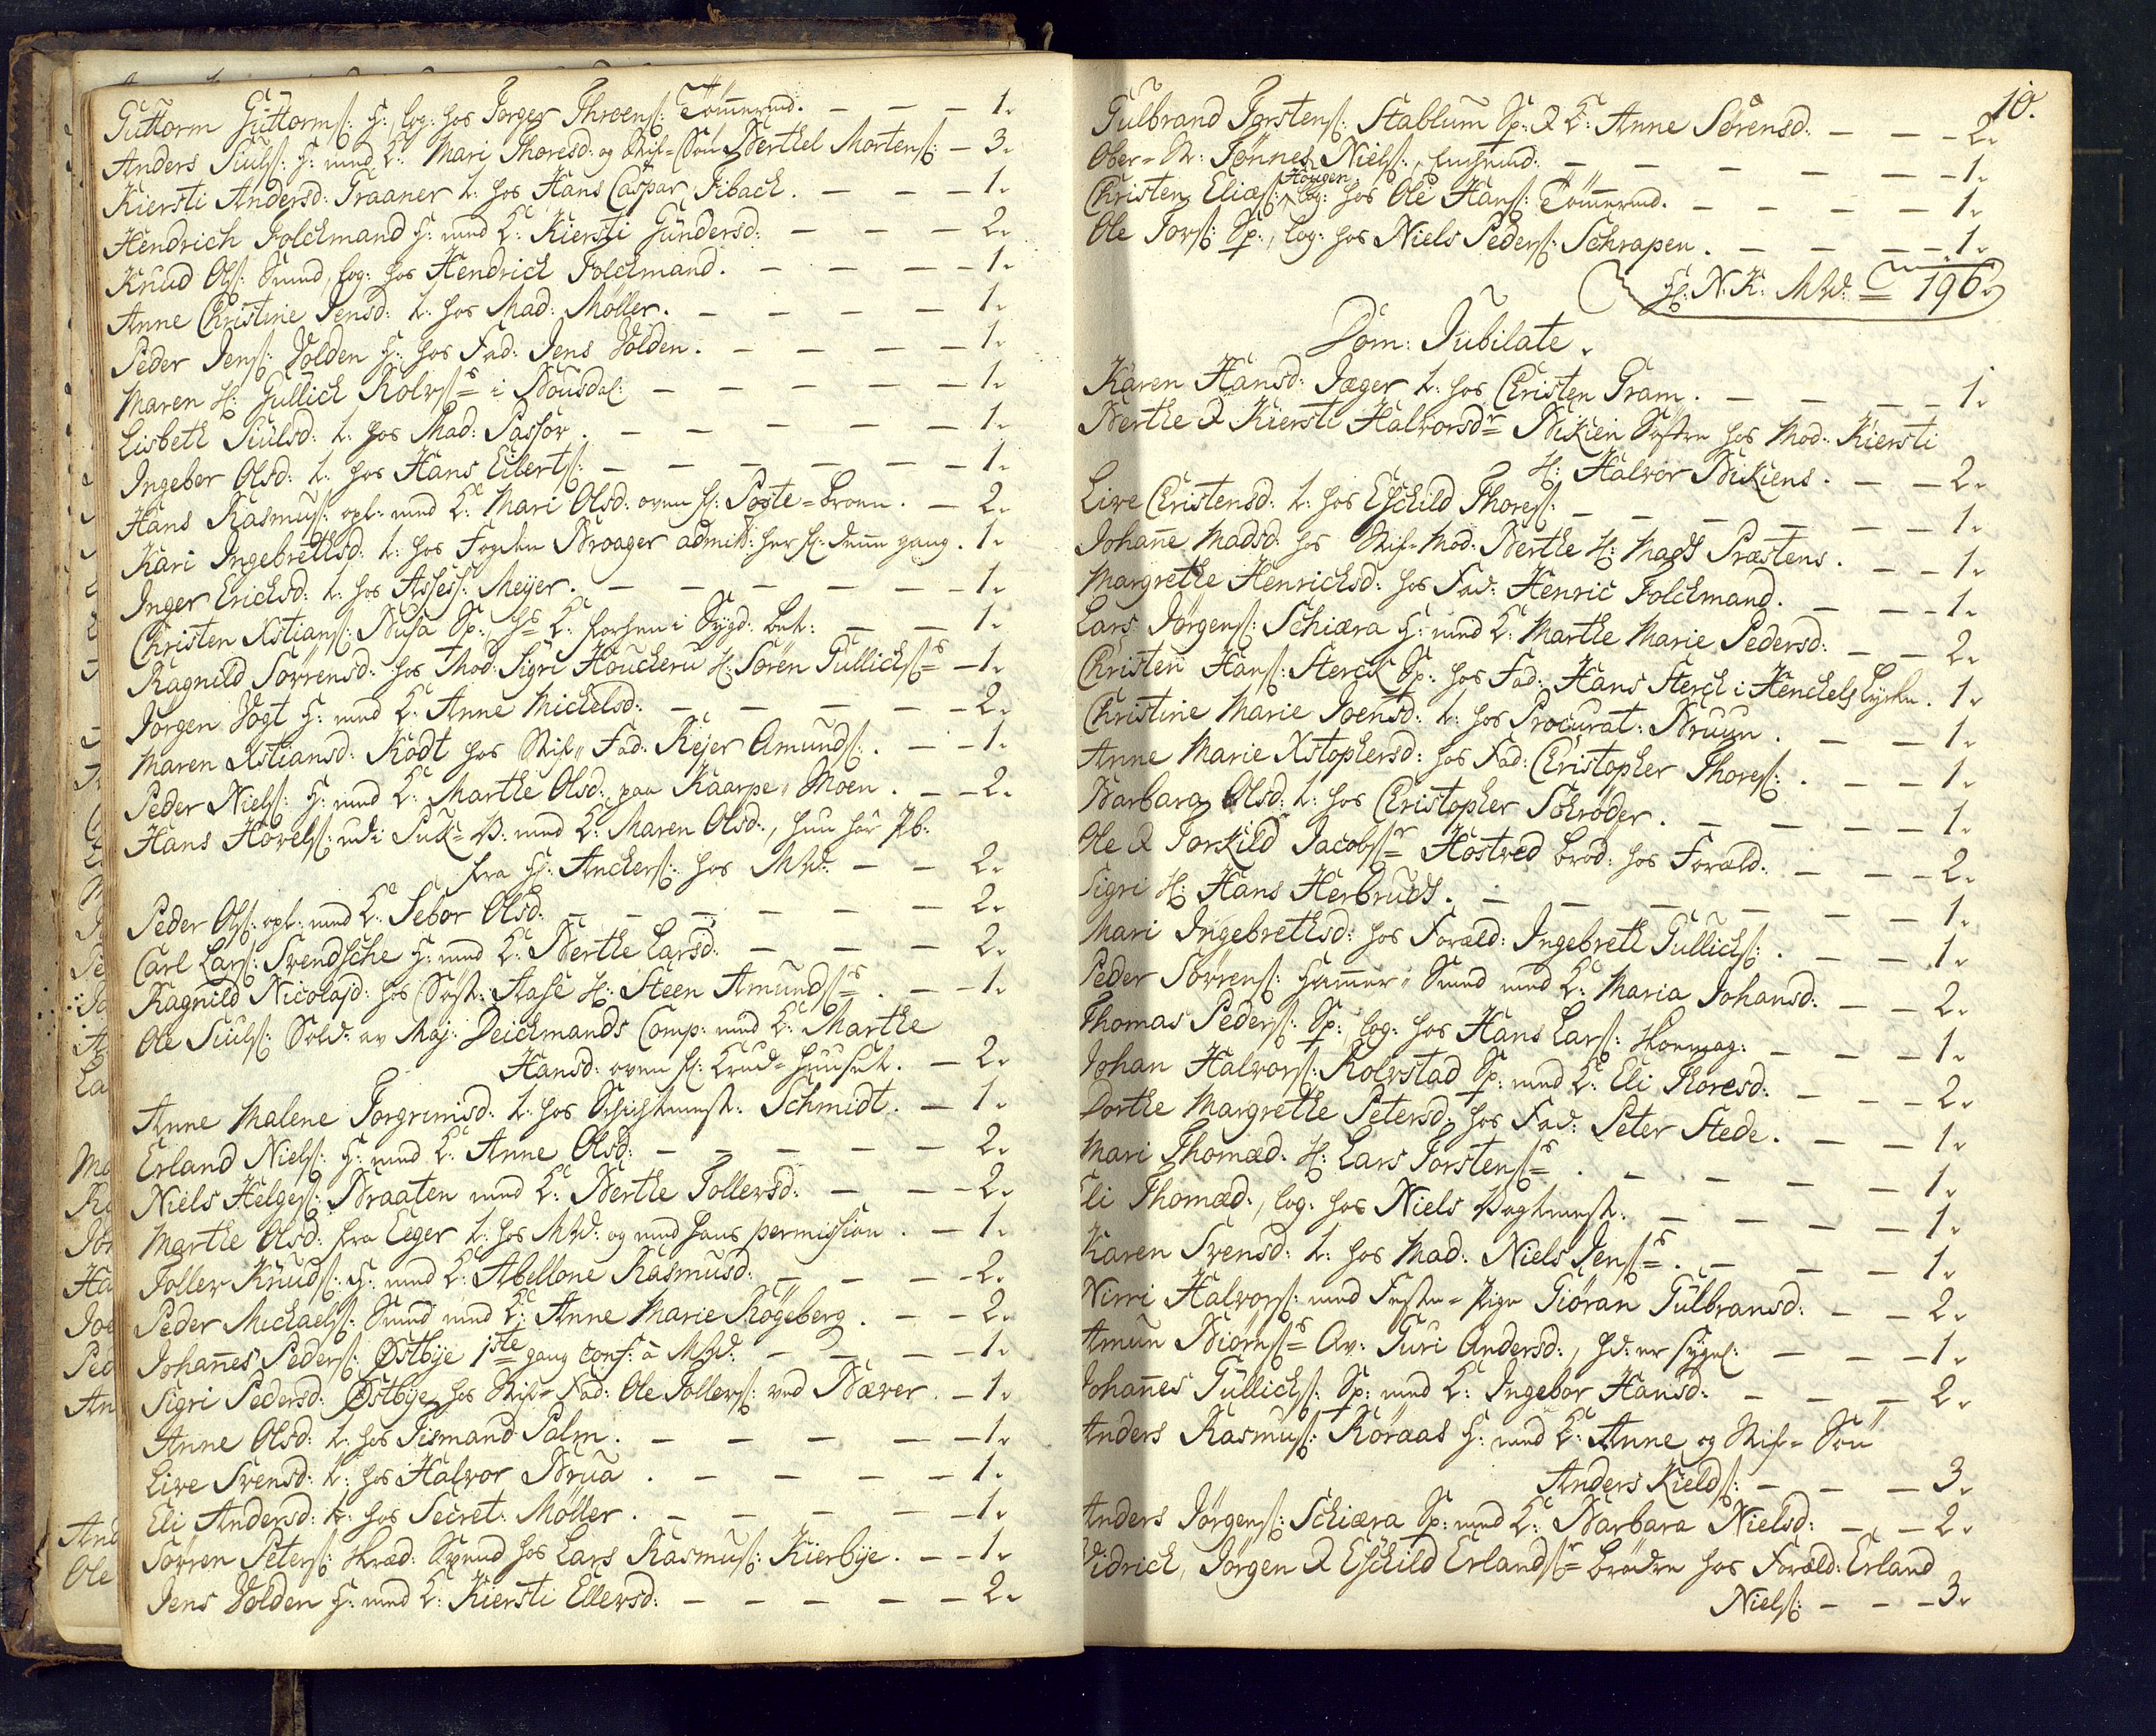 Guttorm Guttorms: H: log: hos Jorger Throens: Tömmermd. — — — 1.
Anders Siuls: H: med K: Mari Thoresd: og Stif=Sön Berthel Mortens: — 3.
Kiersti Andersd: Traaner t: hos Hans Caspar Fibach. — — — 1.
Hendrich Folckmand H: med K: Kiersti Gundersd: — — — 2.
Knud Ols: Smed, log: hos Hendrich Folckmand. — — — — 1.
Anne Christine Jensd: t: hos Mad: Möller. — — — — 1.
Peder Jens: Volden H: hos Fad: Jens Volden. — — — — 1.
Maren H: Gullich Rolvs: i Bousdal: — — — — 1.
Lisbeth Siulsd: t: hos Mad: Passov. — — — — — 1.
Ingeber Olsd: t: hos Hans Eilerts: — — — — — 1.
Hans Rasmus: opl: med K: Mari Olsd: oven f: Poste=broen. — 2.
Kari Ingebrethsd: t: hos Fogden Broager admitt: her f: denne gang. 1.
Inger Erichsd: t: hos Assess: Meyer. — — — — — 1.
Christen Xstians: Busa Sp: K: forhen i Sygd: bet: — — 1.
Ragnild Sövrensd: hos Mod: Sigri Houcheru H: Sören Gullichs: — 1.
Jörgen Vogt H: med K: Anne Michelsd: — — — — 2.
Maren Xstiansd: Rödt hos Stif= Fad: Rejer Amunds: — — 1.
Peder Niels: H: med K: Marthe Olsd: paa Kaarpe= Moen. — — 2.
Hans Hovels: udi Suk= B: med K: Maren Olsd:, hun har Pb:
fra Hr: Anckers: hos MW: — — 2.
Peder Ols: opl: med K: Sebor Olsd: — — — — — 2.
Carl Lars: Svendsche H: med K: Berthe Larsd: — — — 2.
Ragnild Nicolajd: hos Söst: Aase H: Steen Amunds: — — 1.
Ole Siuls: Sold: av Maj: Deichmands Comp: med K: Marthe
Hansd: oven f: Krud=Huuset. — 2.
Anne Malene Torgrimsd: t: hos Schichtmest: Schmidt. — 1.
Erland Niels: H: med K: Anne Olsd: — — — — — 2.
Niels Helges: Braaten med K: Berthe Tollevsd: — — — 2.
Marthe Olsd: fra Eeger t: hos MW: og med hans permission. — 1.
Toller Knuds: H: med K: Abellone Rasmusd: — — — 2.
Peder Michaels: Smed med K: Anne Marie Rögeberg. — — 2.
Johannes Peders: Østbye 1ste gang conf: à MW: — — — 1.
Sigri Pedersd: Østbye hos Stif= Fad: Ole Tollevs: ved Bæver. — 1.
Anne Olsd: t: hos Tismand Palm. — — — — 1.
Live Svensd: t: hos Halvor Brua. — — — — 1.
Eli Andersd: t: hos Secret: Möller. — — — — 1.
Sövren Peters: Skræd: Svend hos Lars Rasmus: Kierbye. — — 1.
Jens Volden H: med K: Kiersti Ellevsd: — — — — 2.
10.
Gulbrand Torstens: Stablum Sp: & K: Anne Sörensd: — — — 2.
Ober= St: Tönnes Niels: — — — — 1.
Christen Elias: Hougen log: hos Ole Hans: Tömmermd. — — — 1.
Ole Tors: Sp:, log: hos Niels Peders: Schrapen. — — — 1.
Hr: N: K: MW: = 196.
Dom: Jubilate.
Karen Hansd: Jæger t: hos Christen Gram. — — — 1.
Berthe & Kiersti Halvorsdr Bikien Söstre hos Mod: Kiersti
H: Halvor Bikiens. — — 2.
Live Christensd: t: hos Eschild Thores: — — — — 1.
Johanne Madsd: hos Stif=Mod: Berthe H: Mads Præstens. — — 1.
Margrethe Henrichsd: hos Fad: Henric Folckmand. — — 1.
Lars Jörgens: Schiæra H: med K: Marthe Marie Pedersd: — — 2.
Christen Hans: Sterck Sp: hos Fad: Hans Sterch i Henckels Lycke. 1.
Christine Marie Joensd: t: hos Procurat: Bruun. — — 1.
Anne Marie Xstophersd: hos Fad: Christopher Thores: — — 1.
Barbara Olsd: t: hos Christopher Schröder. — — — 1.
Ole & Torkild Jacobs: Hostved bröd: hos Foræld: — — — 2.
Sigri H: Hans Herbruds. — — — — — 1.
Mari Ingebrethsd: hos Foræld: Ingebreth Gullichs: — — 1.
Peder Sövrens: Hammer= Smed med K: Maria Johansd: — — 2.
Thomas Peders: Sp:, log: hos Hans Lars: Skoemag: — — — 1.
Johan Halvors: Rolvstad Sp: med K: Eli Thoresd: — — — 2.
Dorthe Margrethe Petersd: hos Fad: Peter Stede. — — 1.
Mari Thomæd: H: Lars Torstens: — — — — 1.
Eli Thomæd:, log: hos Niels Vagtmest: — — — 1.
Karen Svensd: t: hos Mad: Niels Jens: — — — 1.
Nirri Halvors: med Feste= Pige Giöran Gulbransd: — — 2.
Amun Biörns: Av: Guri Andersd:, hd: er sygel: — — 1.
Johannes Gullichs: Sp: med K: Ingebor Hansd: — — — 2.
Anders Rasmus: Röraas H: med K: Anne og Stif= Sön
Anders Kields: — — — 3.
Anders Jörgens: Schiæra Sp: med K: Barbara Nielsd: — — 2.
Didrich, Jörgen & Eschild Erlands: brödre hos Foræld: Erland
Niels: — — — 3.